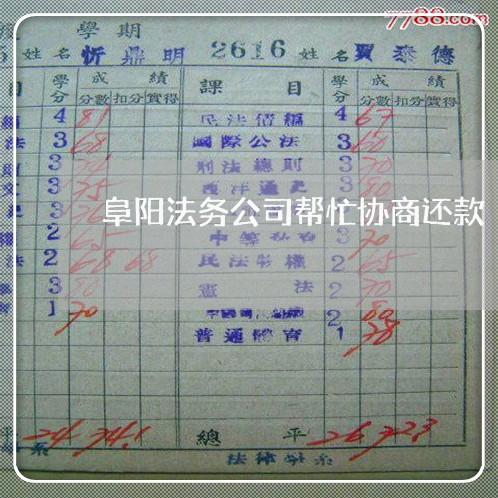 7788.com
學期
姓名 忻鼎明 2616 姓名 賈泰德
目 學分 成績 課目 學分 成績
分數 扣分 實得 分數 扣分 實得
4 81 民法債編 4 67
法 3 68 國際公法 3 60
3 刑法總則 3 70
3 75 西洋通史 80
阜阳法务公司帮忙协商还款
2 65 3 70
法 2 68 68 民法物權 2 65
3 80 憲法 2 70
1 70 2 80
普通體育 1 78
平 24 74.1 總平 26 72.3
系 法律學系